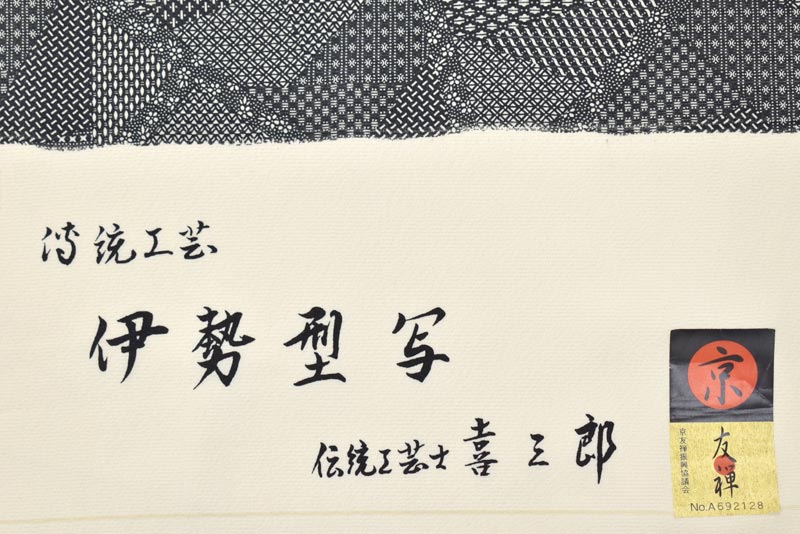 傳統工芸
伊勢型写
伝統工芸士 喜三郎
京
友禅
京友禅振興協議会
No.A692128